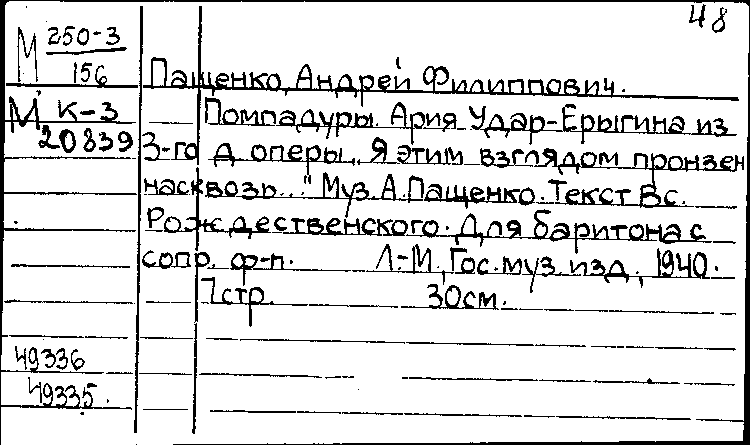 48
М 250-3
156
Пащенко, Андрей Филиппович.
М К-3
20839
Помпадуры. Ария Удар-Ерыгина из
3-го д. оперы „Я этим взглядом пронзен
насквозь..." Муз. А. Пащенко. Текст Вс.
Рождественского. Для баритона с
сопр. ф-п. Л.-М., Гос. муз. изд., 1940.
7 стр. 30 см.
49336
49335.